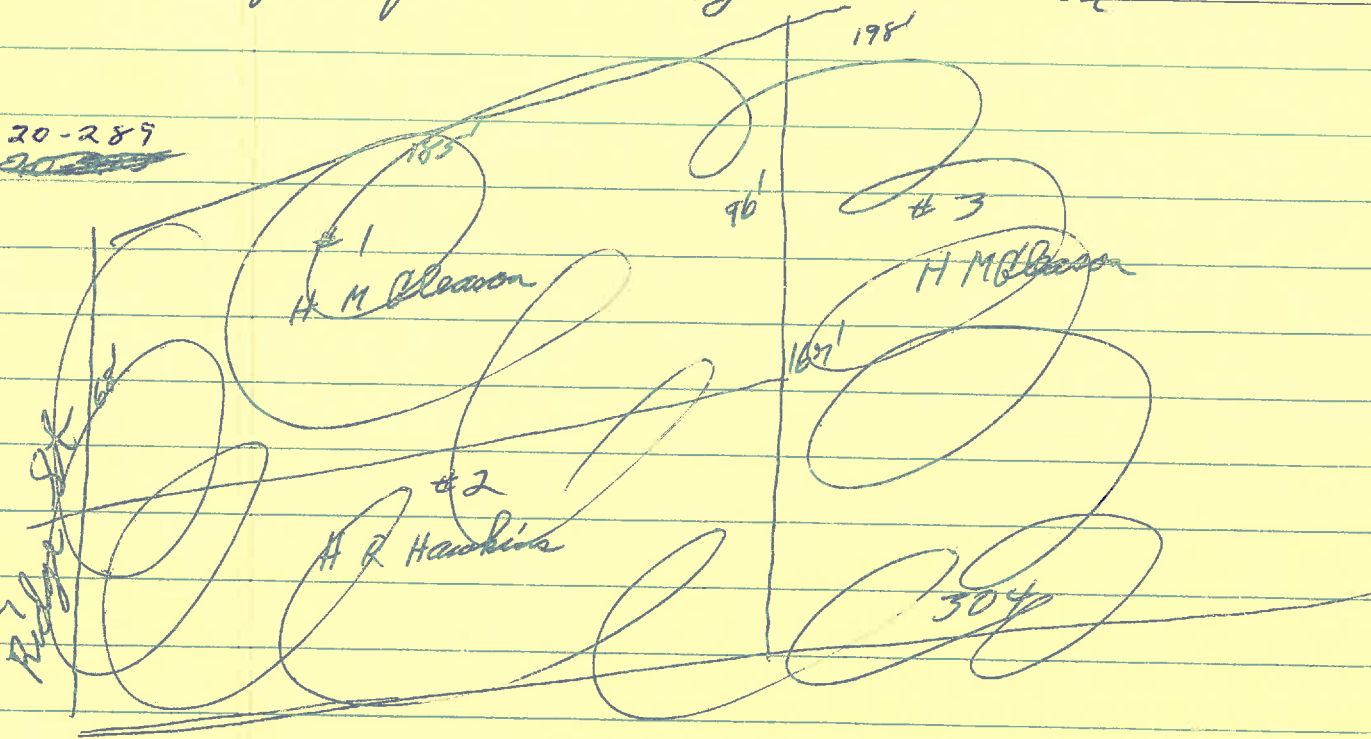 198'
20-289
183'
96'
#1
#3
H M Gleason
H M Gleason
167'
#2
H R Hawkins
304
Ridge St